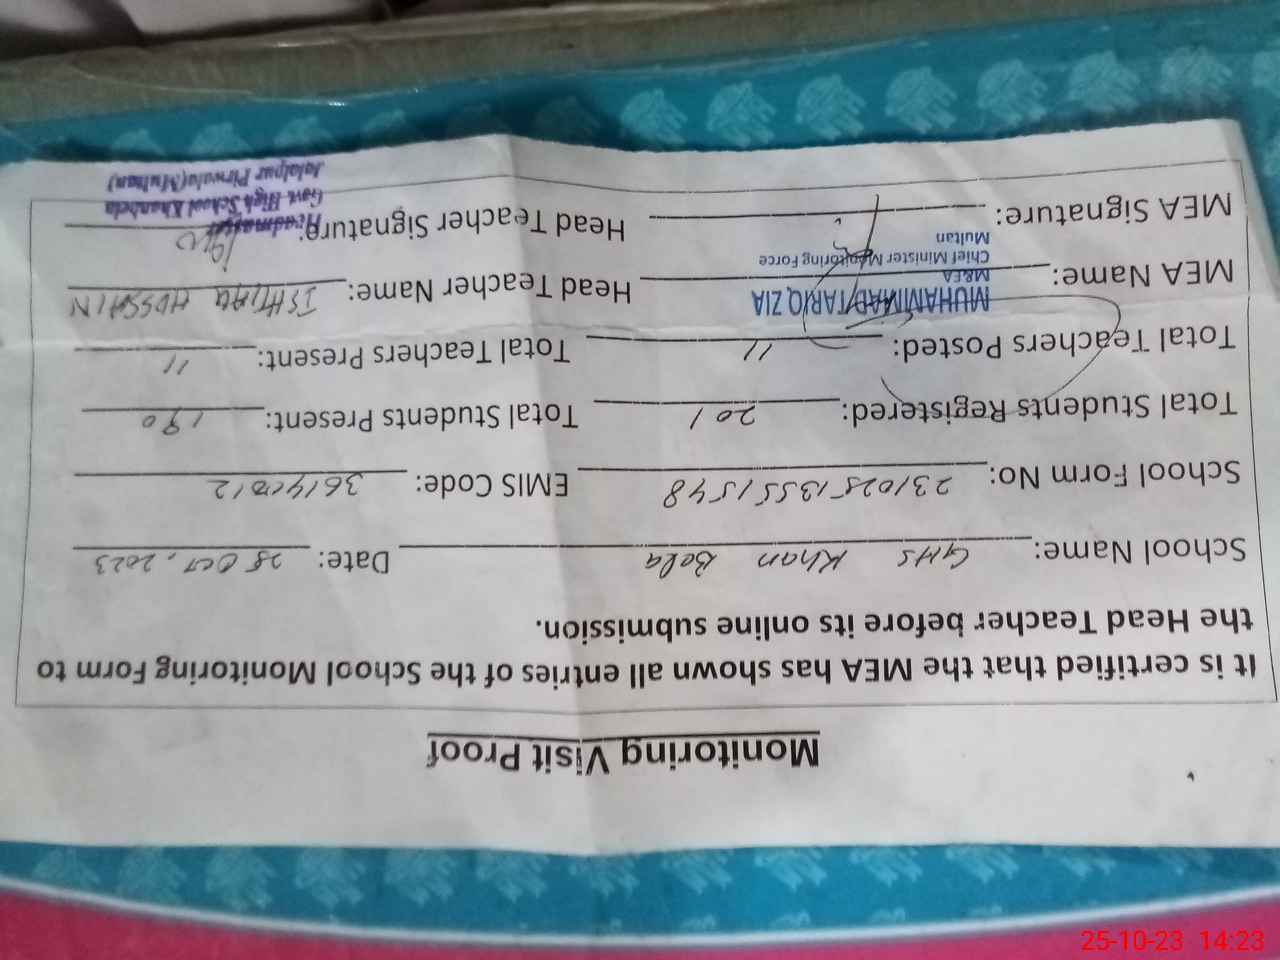 Monitoring Visit Proof
It is certified that the MEA has shown all entries of the School Monitoring Form to
the Head Teacher before its online submission.
School Name: GHS Khan Bela Date: 25 Oct, 2023
School Form No: 23102513551548 EMIS Code:
Total Students Registered: 201 Total Students Present: 190
Total Teachers Posted: 11 Total Teachers Present: 11
MUHAMMAD TARIQ ZIA
MEA Name: M&EA Head Teacher Name: ISHTIAQ HUSSAIN
Chief Minister Monitoring Force
Multan
MEA Signature: Head Teacher Signature:
Headmaster
Govt. High School Khanbela
Jalalpur Pirwala (Multan)
25-10-23 14:23